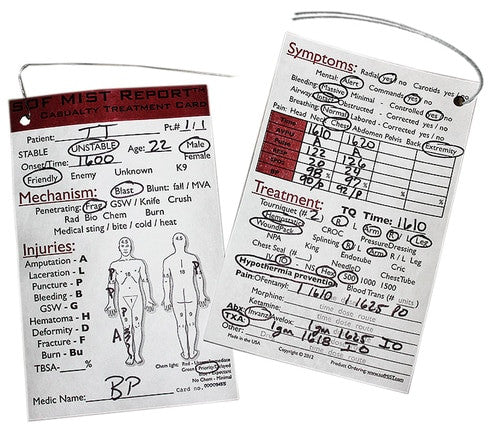 SOF MIST-REPORT™
CASUALTY TREATMENT CARD
Patient: II Pt.# 1/1
STABLE UNSTABLE Age: 22 Male
Onset/Time: 1600 Female
Friendly Enemy Unknown K9
Mechanism: Blast Blunt: fall / MVA
Penetrating: Frag GSW / Knife Crush
Rad Bio Chem Burn
Medical sting / bite / cold / heat
Injuries:
Amputation - A
Laceration - L
Puncture - P
Bleeding - B
GSW - G
Hematoma - H
Deformity - D
Fracture - F
Burn - Bu
TBSA-____%
4.5
18
18
A
Chem light: Red - Immediate
Green - Priority/Delayed
Blue - Expectant
No Chem - Minimal
Medic Name: BP
Card no. 00009455
Symptoms: Radial yes no Carotids yes no
Mental: Alert Commands yes no
Bleeding: Massive Minimal - Controlled yes no
Airway: Intact Obstructed - Corrected yes / no
Breathing: Normal Labored - Corrected yes / no
Pain: Head Neck Chest Abdomen Pelvis Back Extremity
Time 1610 1620
AVPU A A
Pulse 122 126
Resp 20 24
SPO2 98 % 97 % % %
BP 90/P 92/P
Treatment: TQ Time: 1610
Tourniquets (# 2) R L Arm R L Leg
Hemostatic CROC R / L Arm R / L Leg
WoundPack Splinting PressureDressing
NPA King Endotube Cric
Chest Seal (# ) NeedleD ChestTube
IV IO NS Hex 500 1000 1500
Hypothermia prevention Blood Trans (# units)
Pain: OFentanyl: 1 1610 1 1625 PO
Morphine: time dose route
Ketamine: time dose route
Abx: Invanz Avelox: 1gm 1625 IO
TXA 1gm 1618 IO
Other:
time dose route
Made in the USA Copyright © 2012